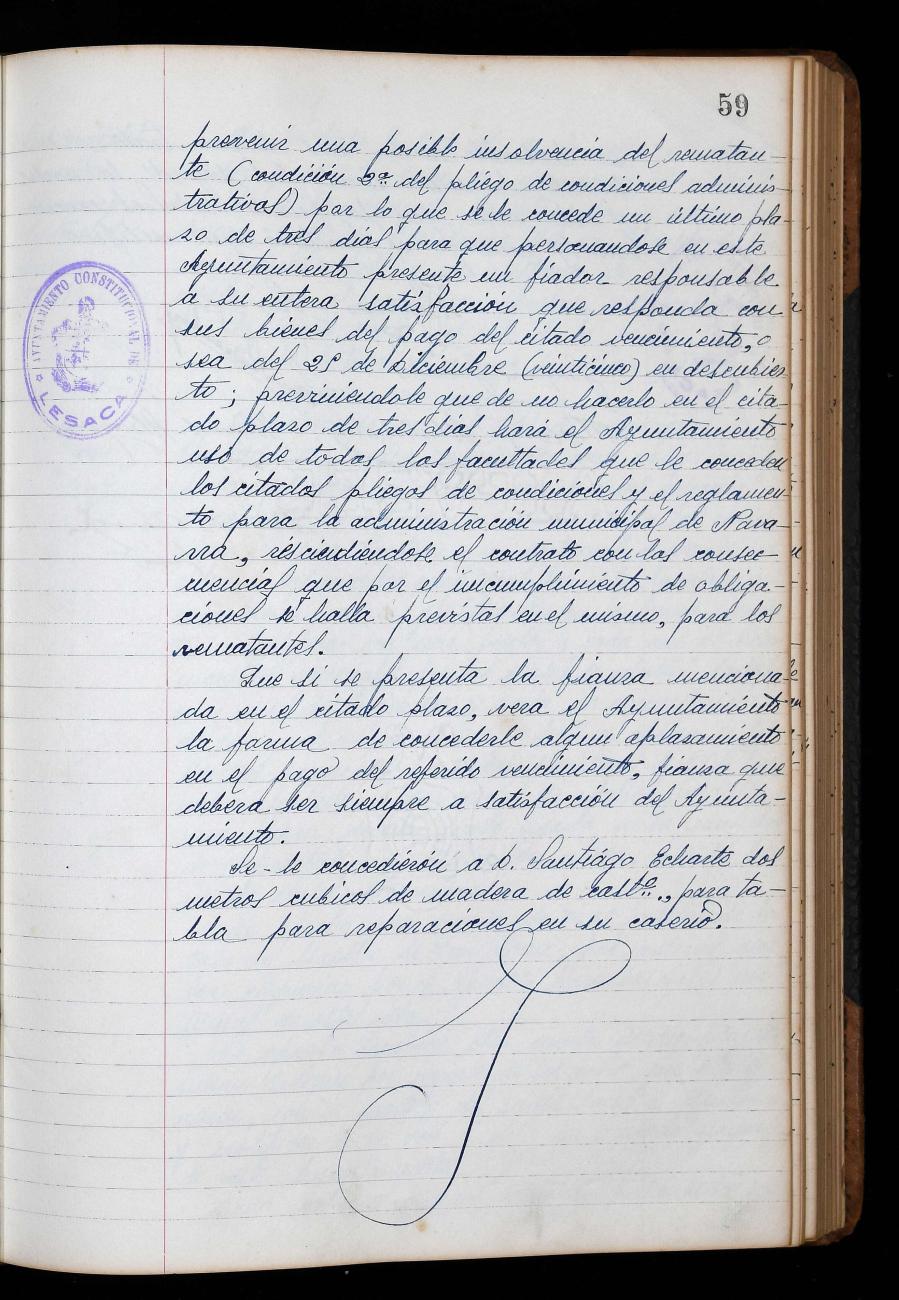 59
prevenir una posible insolvencia del rematan-
te (condición 2ª del pliego de condiciones adminis-
trativas) por lo que se le concede un último pla-
zo de tres días para que personandose en este
Ayuntamiento presente un fiador responsable
a su entera satisfacción que responda con
sus bienes del pago del citado vencimiento, o
sea del 25 de Diciembre (veinticinco) en descubier
to; previniendole que de no hacerlo en el cita-
do plazo de tres dias hará el Ayuntamiento
uso de todas las facultades que le conceden
los citados pliegos de condiciones y el reglamen-
to para la administración municipal de Nava-
rra, rescindiéndose el contrato con las conse-
cuencias que por el incumplimiento de obliga-
ciones se halla previstas en el mismo, para los
rematantes.
Que si se presenta la fianza menciona
da en el citado plazo, vera el Ayuntamiento
la forma de concederle algun aplazamiento
en el pago del referido vencimiento, fianza que
debera ser siempre a satisfacción del Ayunta-
miento.
Se le concedierón a D. Santiágo Echarte dos
metros cubicos de madera de castº., para ta-
bla para reparaciones en su caserio.
AYUNTAMIENTO CONSTITUCIONAL DE
LESACA